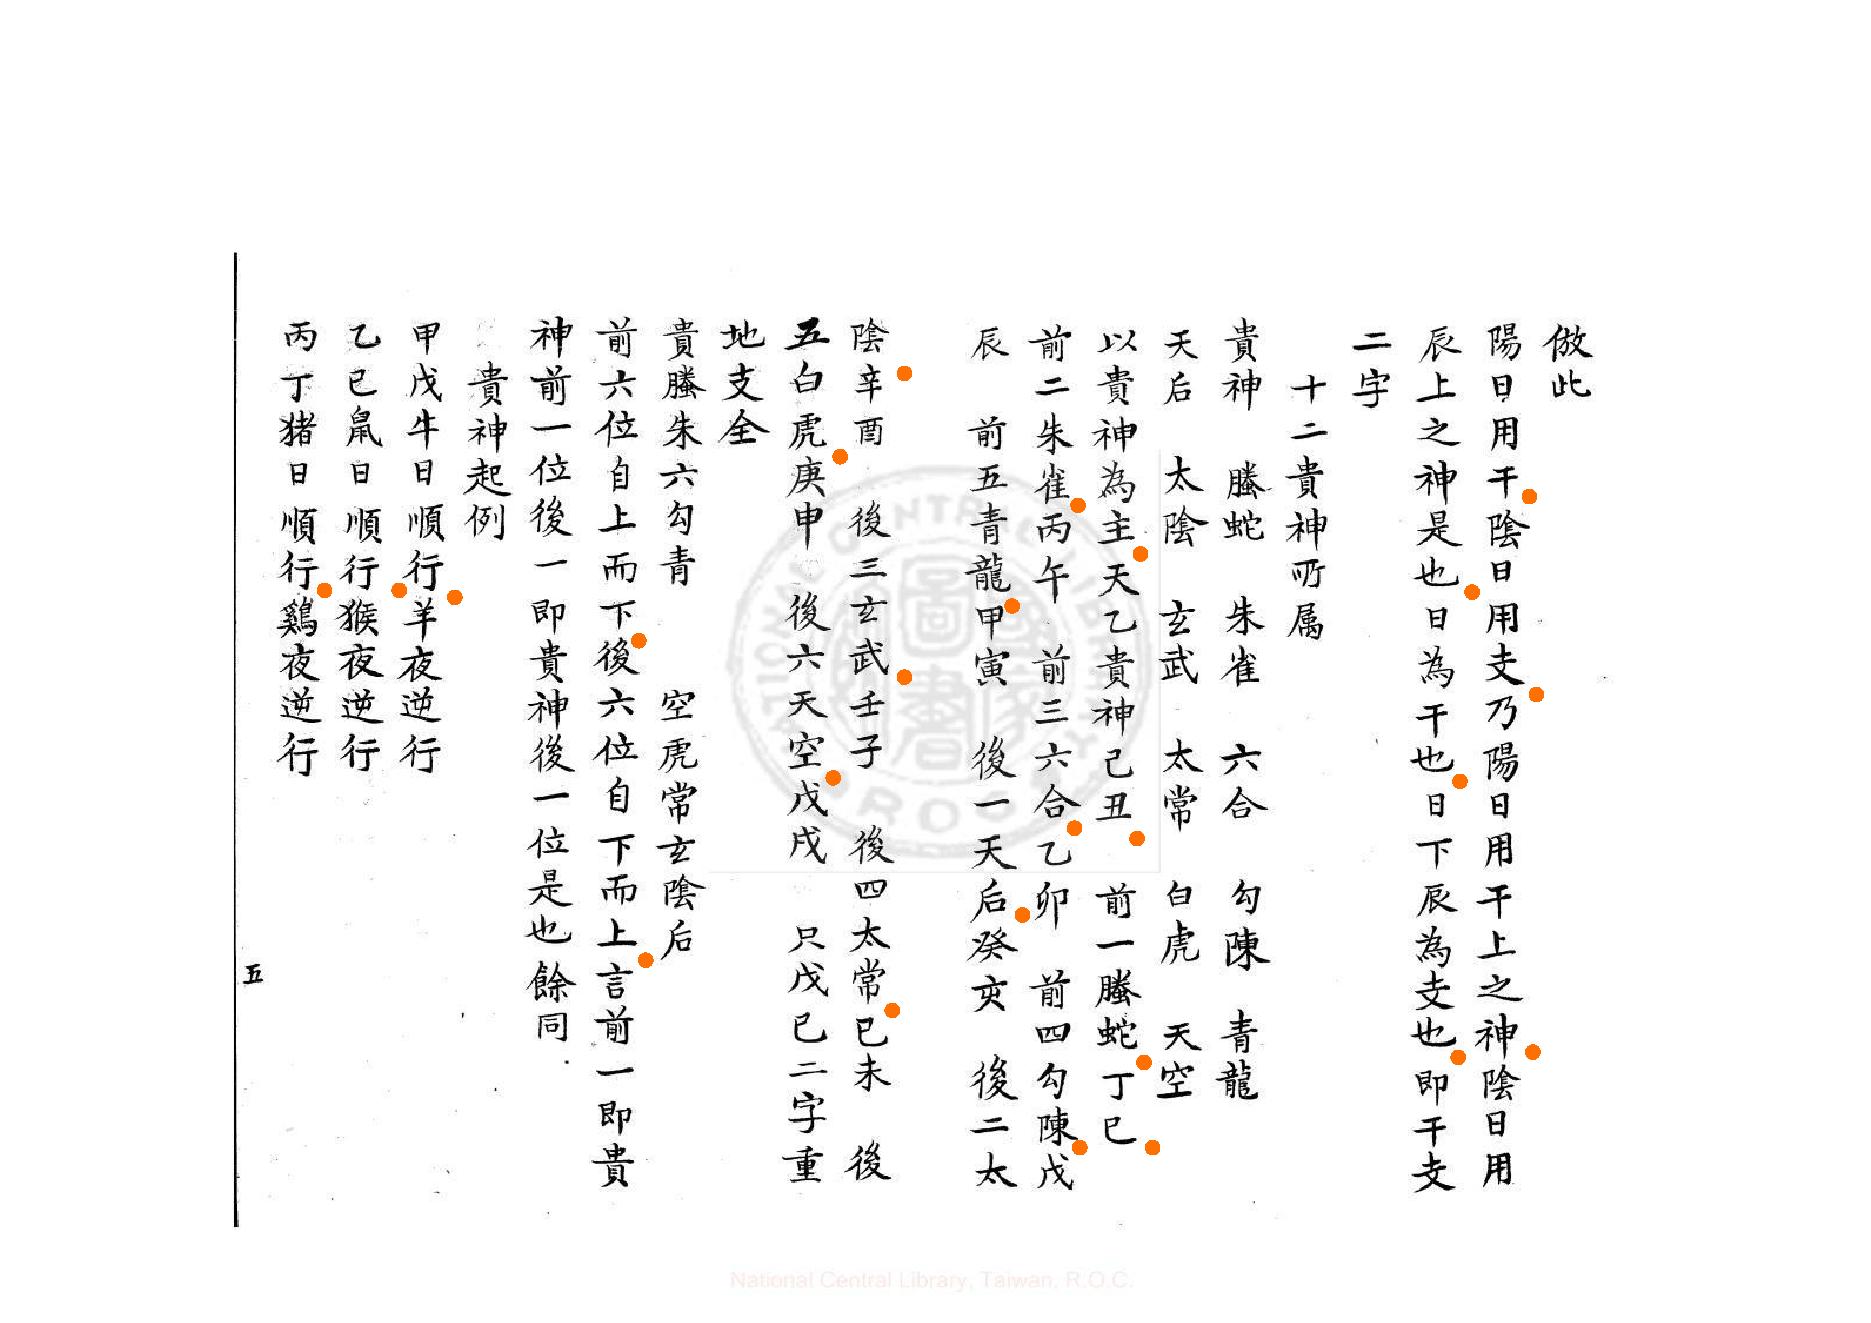 倣此
陽日用干陰日用支乃陽日用干上之神陰日用
辰上之神是也日為干也日下辰為支也即干支
二字
十二貴神所属
貴神 螣蛇 朱雀 六合 勾陳 青龍
天后 太陰 玄武 太常 白虎 天空
以貴神為主天乙貴神己丑 前一螣蛇丁巳
前二朱雀丙午 前三六合乙卯 前四勾陳戊
辰 前五青龍甲寅 後一天后癸亥 後二太
陰辛酉 後三玄武壬子 後四太常己未 後
五白虎庚申 後六天空戊戌 只戊己二字重
地支全
貴螣朱六勾青 空虎常玄陰后
前六位自上而下後六位自下而上言前一即貴
神前一位後一即貴神後一位是也餘同
貴神起例
甲戊牛日順行羊夜逆行
乙己鼠日順行猴夜逆行
丙丁猪日順行鷄夜逆行
五
National Central Library, Taiwan, R.O.C.